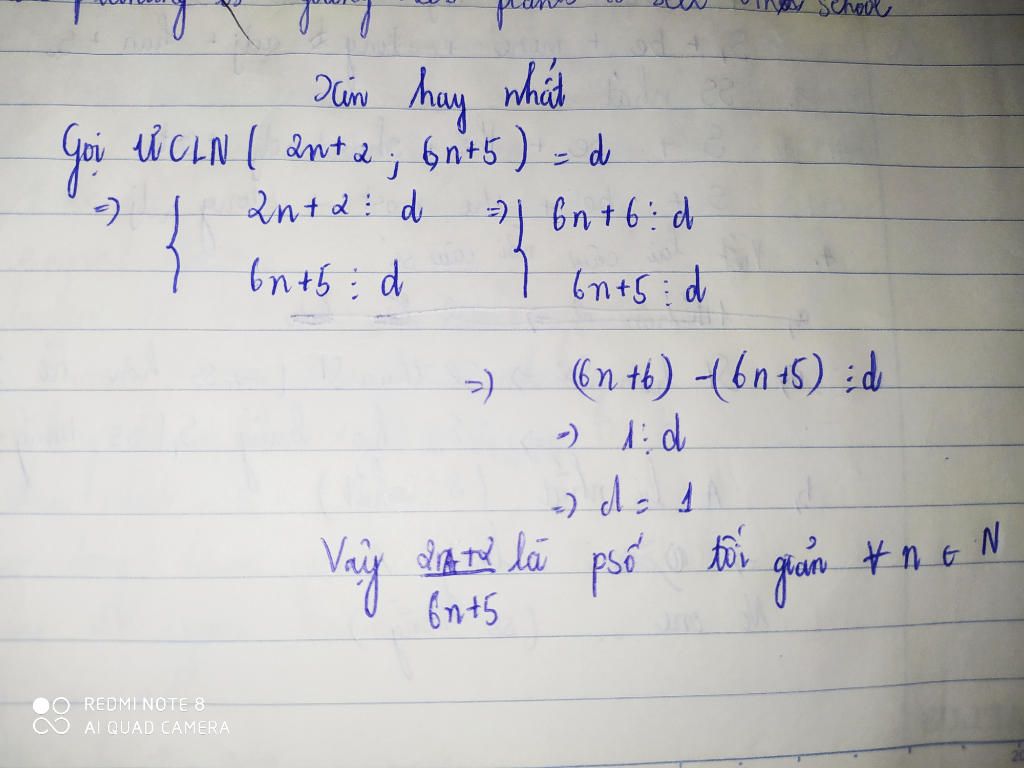 planning is going school
Xin hay nhất
Gọi ƯCLN ( 2n+2 ; 6n+5 ) = d
=> { 2n+2 ⋮ d => { 6n+6 ⋮ d
6n+5 ⋮ d 6n+5 ⋮ d
=> (6n+6) -(6n+5) ⋮ d
=> 1 ⋮ d
=> d = 1
Vậy 2n+2 là psố tối giản ∀ n ∈ N
6n+5
REDMI NOTE 8
AI QUAD CAMERA